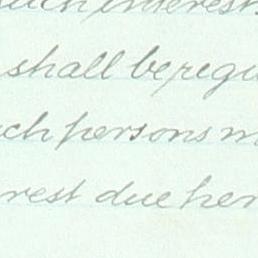 such interests
shall be regu
ch persons m
rest due her